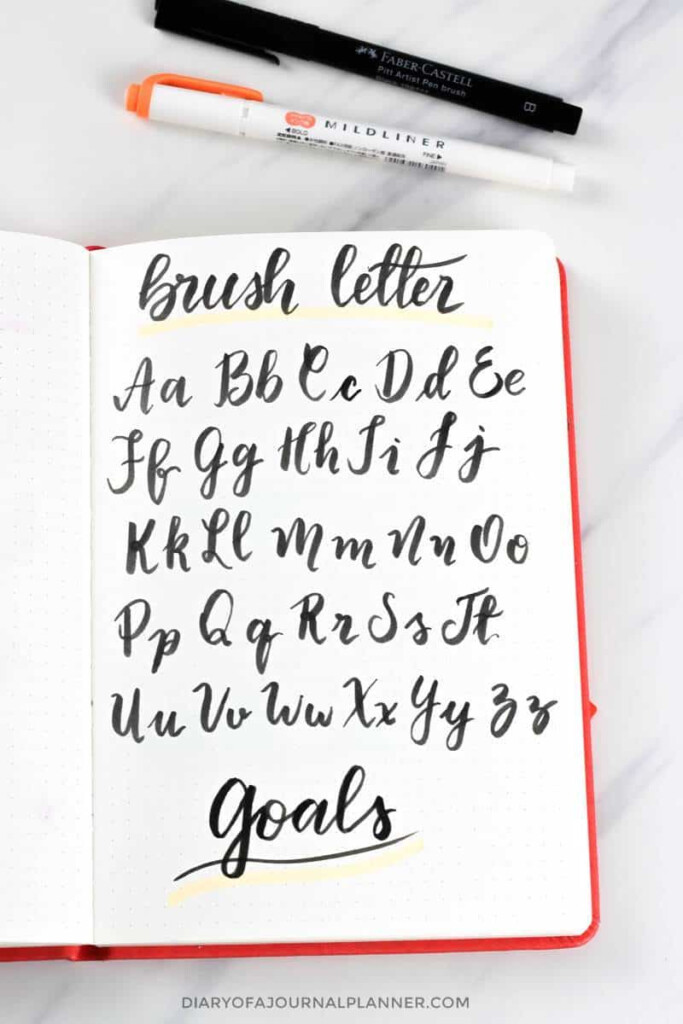 FABER-CASTELL
Pitt Artist Pen brush
B
MILDLINER
BOLD
FINE
brush letter
Aa Bb Cc Dd Ee
Ff Gg Hh Ii Jj
Kk Ll Mm Nn Oo
Pp Qq Rr Ss Tt
Uu Vv Ww Xx Yy Zz
goals
DIARYOFAJOURNALPLANNER.COM